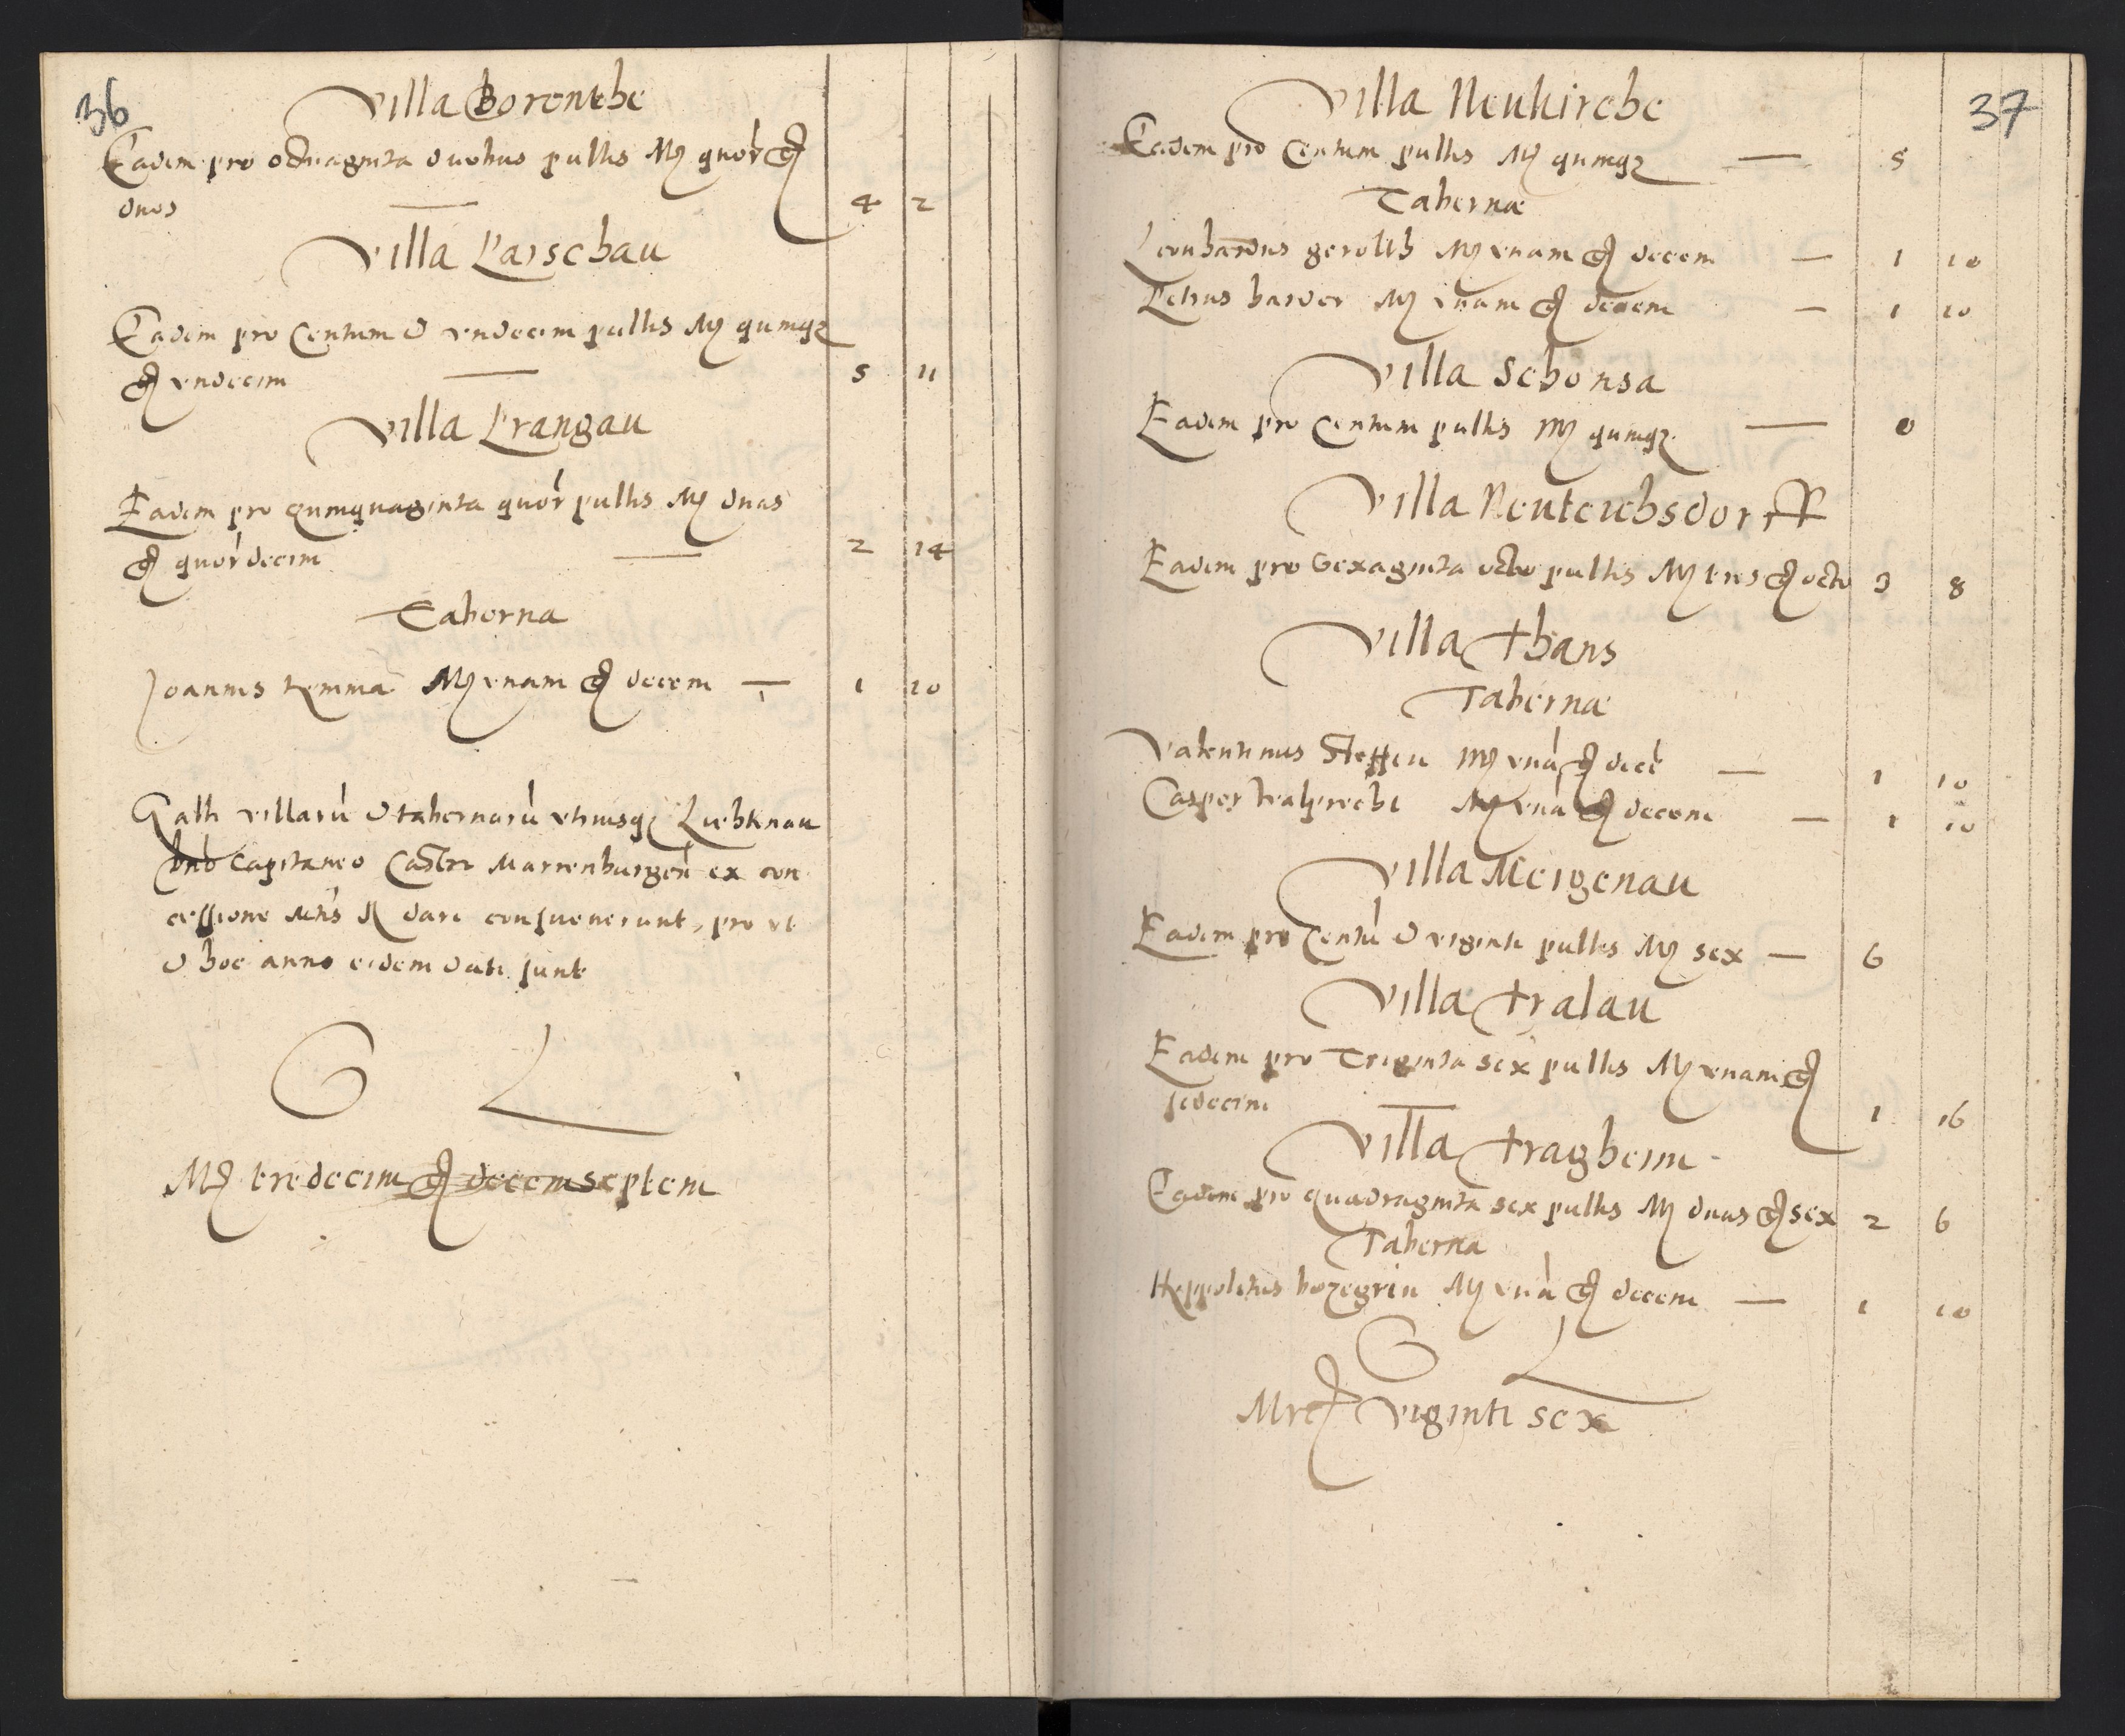 36
Villa Borenthe
Eadem pro octuaginta duobus pullis Mr quor gr
duos — 4 2
Villa Parschau
Eadem pro Centum et vndecim pullis Mr quinqz
gr vndecim — 5 11
Villa Prangau
Eadem pro quinquaginta quor pullis Mr duas
gr quordecim — 2 14
Taberna
Joannes temma Mr vnam gr decem — 1 10
Galli villaru et tabernaru vtriusqz Liebtknau
Capitaneo Castri Marienburgen ex con
cessione Mtis R dari consueuerunt, pro vt
et hoc anno eidem dati sunt
G L
Mr tredecim gr decemseptem
37
Villa Neukirche
Eadem pro Centum pullis Mr quinqz — 5
Tabernæ
Leonhardus gerolth Mr vnam gr decem — 1 10
Petrus harder Mr vnam gr decem — 1 10
Villa Schonsa
Eadem pro Centum pullis Mr quinqz — 0
Villa Neuteichsdorff
Eadem pro Sexaginta octo pullis Mr tres gr octo 3 8
Villa thans
Tabernæ
Valentinus Steffen Mr vna gr dece — 1 10
Casper halprecht Mr vna gr decem — 1 10
Villa Meigenau
Eadem pro Centu et viginti pullis Mr sex — 6
Villa tralau
Eadem pro Triginta sex pullis Mr vnam gr
sedecim — 1 16
Villa tragheim
Eadem pro quadraginta sex pullis Mr duas gr sex 2 6
Taberna
Heppolitus bozegrin Mr vna gr decem — 1 10
G L
Mrc viginti sex